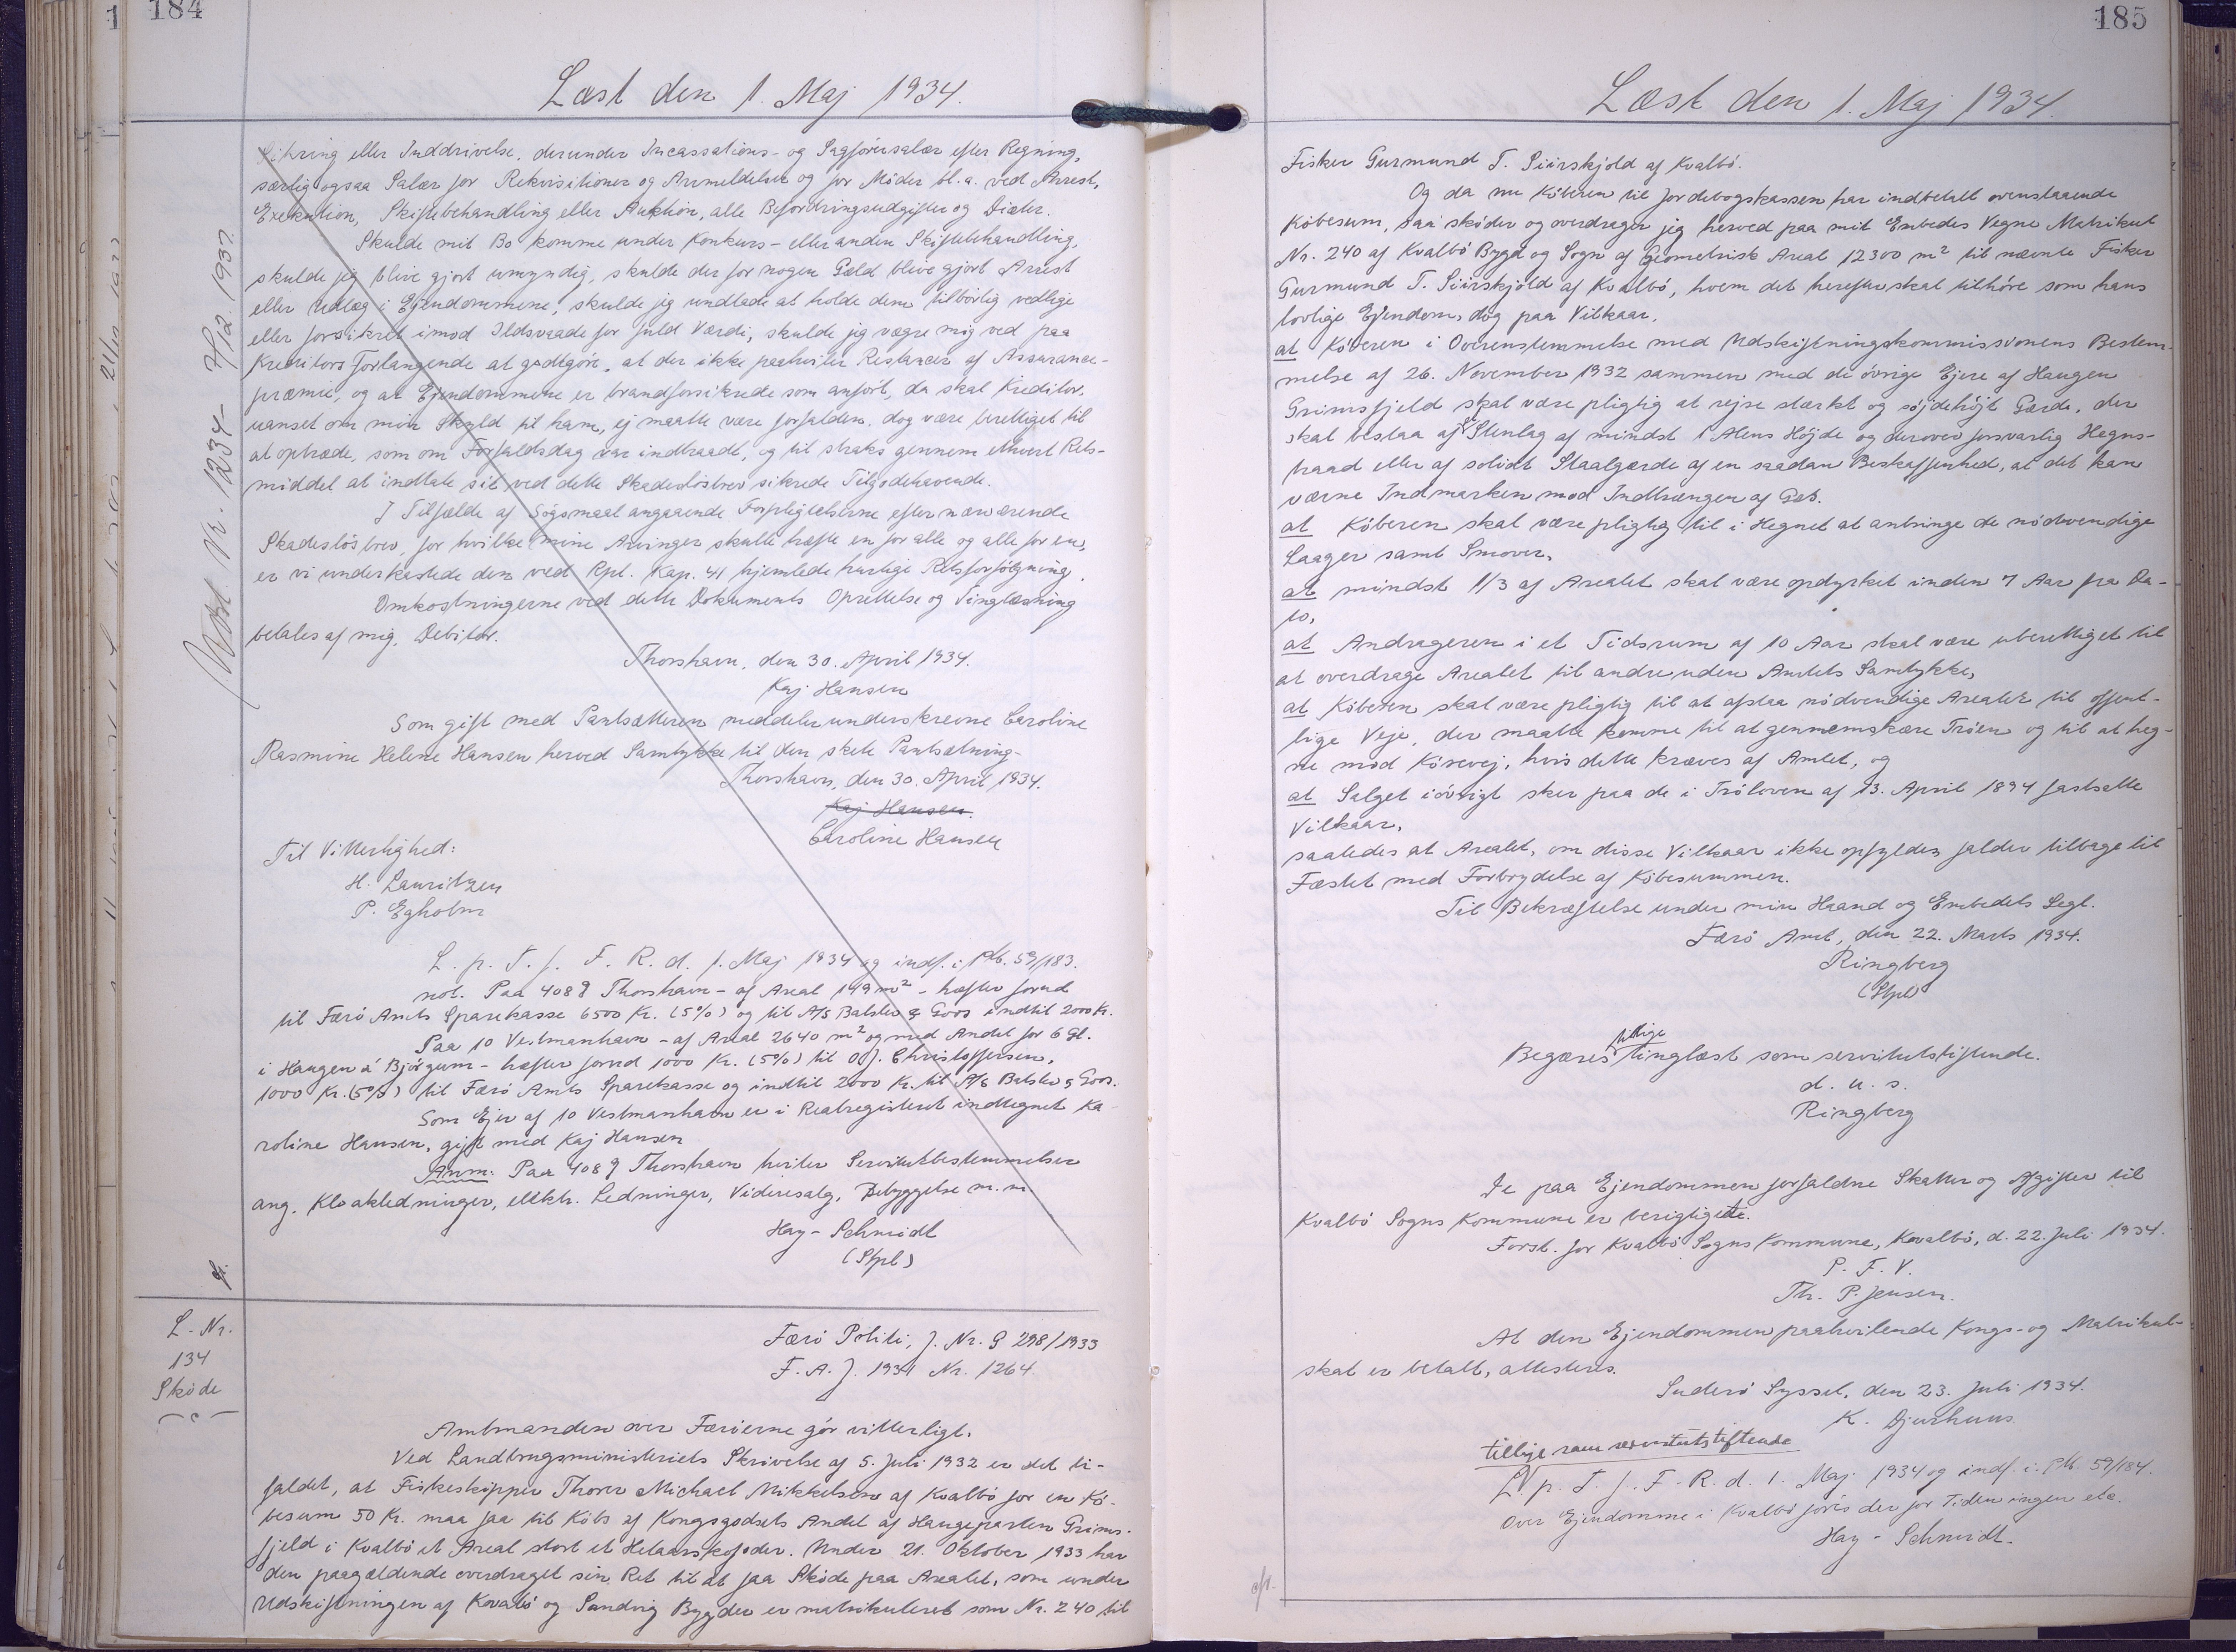 184
Læst den 1. Maj 1934.
Sikring eller Inddrivelse, derunder Incassations- og Sagførersalær efter Regning,
særlig ogsaa Salær for Rekvisitioner og Anmeldelser og for Møder bl.a. ved Arrest,
Exekution, Skiftebehandling eller Auktion, alle Befordringsudgifter og Diæter.
Skulde mit Bo komme under Konkurs- eller anden Skiftebehandling,
skulde jeg blive gjort umyndig, skulde der for nogen Gæld blive gjort Arrest
eller Udlæg i Ejendommene, skulde jeg undlade at holde dem tilbørlig vedlige
eller forsikret imod Ildsvaade for fuld Værdi, skulde jeg vægre mig ved paa
Kreditors Forlangende at godtgøre, at der ikke paahviler Restancer af Assurance-
præmie, og at Ejendommene er brandforsikrede som anført, da skal Kreditor,
uanset om min Skyld til ham, ej maatte være forfalden, dog være berettiget til
at optræde, som om Forfaldsdag var indtraadt, og til straks gennem ethvert Rets-
middel at indtale sit ved dette Skadesløsbrev sikrede Tilgodehavende.
I Tilfælde af Søgsmaal angaaende Forpligtelserne efter nærværende
Skadesløsbrev, for hvilke mine Arvinger skulle hæfte en for alle og alle for en,
er vi underkastede den ved Rpl. Kap. 41 hjemlede hurtige Retsforfølgning.
Omkostningerne ved dette Dokuments Oprettelse og Tinglæsning
betales af mig, Debitor.
Thorshavn, den 30. April 1934.
Kaj Hansen
Som gift med Pantsætteren meddeler underskrevne Caroline
Rasmine Helene Hansen herved Samtykke til den skete Pantsætning-
Thorshavn, den 30. April 1934.
Kaj Hansen.
Caroline Hansen
Til Vitterlighed:
H. Lauritzen
P. Egholm
L. p. T. f. F. R. d. 1. Maj 1934 og indf. i Ptb. 59/183.
not. Paa 408 q Thorshavn - af Areal 149 m² - hæfter forud
til Færø Amts Sparekasse 6500 Kr. (5%) og til A/S Balslev & Goos indtil 2000 Kr.
Paa 10 Vestmanhavn - af Areal 2640 m² og med Andel for 6 Gl.
i Haugen á Bjørgum - hæfter forud 1000 Kr. (5%) til O. J. Christoffersen,
1000 Kr. (5%) til Færø Amts Sparekasse og indtil 2000 Kr. til A/S Balslev & Goos.
Som Ejer af 10 Vestmanhavn er i Realregisteret indtegnet Ka-
roline Hansen, gift med Kaj Hansen
Anm: Paa 408 q Thorshavn hviler Servitutbestemmelser
ang. Kloakledninger, elektr. Ledninger, Videresalg, Bebyggelse m.m
Hay-Schmidt
(Stpl)
L-Nr.
134
Skøde
Færø Politi, J. Nr. G 298/1933
F. A. J. 1931 Nr. 1264.
Amtmanden over Færøerne gør vitterligt.
Ved Landbrugsministeriets Skrivelse af 5. Juli 1932 er det ti-
faldet, at Fiskeskipper Thorer Michael Mikkelsen af Kvalbø for en Kø-
besum 50 Kr. maa faa til Købs af Kongsgodsets Andel af Haugeparten Grims-
fjeld i Kvalbø et Areal stort et Helaarskofoder. Under 21. Oktober 1933 har
den paagældende overdraget sin Ret til at faa Skøde paa Arealet, som under
Udskiftningen af Kvalbø og Sandvig Bygder er matrikuleret som Nr. 240 til
185
Læst den 1. Maj 1934.
Fisker Gurmund T. Siirskjold af Kvalbø.
Og da nu Køberen til Jordebogskassen har indbetalt ovenstaaende
Købesum, saa skøder og overdrager jeg herved paa mit Embedes Vegne Matrikul
Nr. 240 af Kvalbø Bygd og Sogn af geometrisk Areal 12300 m² til nævnte Fisker
Gurmund T. Siirskjold af Kvalbø, hvem det herefter skal tilhøre som hans
lovlige Ejendom, dog paa Vilkaar,
at Køberen i Overenstemmelse med Udskiftningskommissionens Bestem-
melse af 26. November 1932 sammen med de øvrige Ejere af Haugen
Grimsfjeld skal være pligtig at rejse stærkt og søjdehøjt Gærde, der
skal bestaa af Stenlag af mindst 1 Alens Højde og derover forsvarlig Hegns-
traad eller af solidt Staalgærde af en saadan Beskaffenhed, at det kan
værne Indmarken mod Indtrængen af Gæs.
at Køberen skal være pligtig til i Hegnet at anbringe de nødvendige
Laager samt Smover,
at mindst 1/3 af Arealet skal være opdyrket inden 7 Aar fra Da-
to,
at Andrageren i et Tidsrum af 10 Aar skal være uberettiget til
at overdrage Arealet til andre uden Amtets Samtykke,
at Køberen skal være pligtig til at afstaa nødvendige Arealer til offent-
lige Veje, der maatte komme til at gennemskære Trøen og til at heg-
ne mod Kørevej, hvis dette kræves af Amtet, og
at Salget iøvrigt sker paa de i Trøloven af 13. April 1894 fastsatte
Vilkaar,
saaledes at Arealet, om disse Vilkaar ikke opfyldes, falder tilbage til
Fæstet med Forbrydelse af Købesummen.
Til Bekræftelse under min Haand og Embedets Segl.
Færø Amt, den 22. Marts 1934.
Ringberg
(Stpl)
Begæres tillige tinglæst som servitutstiftende.
d. u. s.
Ringberg
De paa Ejendommen forfaldne Skatter og Afgifter til
Kvalbø Sogns Kommune er berigtigede.
Forst. for Kvalbø Sogns Kommune, Kvalbø, d. 22. Juli 1934.
P. F. V.
Th. P. Jensen.
At den Ejendommen paahvilende Kongs- og Matrikul-
skat er betalt, attesteres.
Suderø Syssel, den 23. Juli 1934.
K. Djurhuus
tillige som servitutstiftende
L. p. T. f. F. R. d. 1. Maj 1934 og indf. i Ptb. 59/184.
Over Ejendomme i Kvalbø føres der for Tiden ingen
Hay-Schmidt.